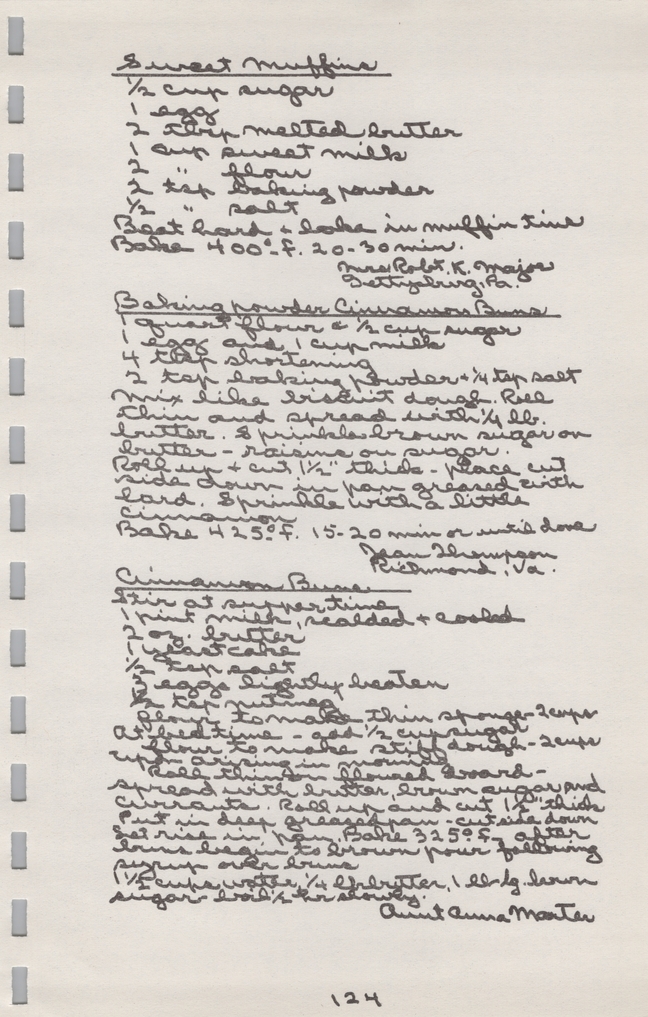 Sweet Muffins
1/2 cup sugar
1 egg
2 tbsp melted butter
1 cup sweet milk
2 " flour
2 tsp baking powder
1/2 " salt
Beat hard + bake in muffin tins
Bake 400° f. 20-30 min.
Mrs Robt. K. Major
Gettysburg, Pa.
Baking powder Cinnamon Buns
1 quart flour & 1/2 cup sugar
1 egg and 1 cup milk
4 tbsp shortening
2 tsp baking powder + 1/4 tsp salt
Mix like biscuit dough. Roll
thin and spread with 1/4 lb.
butter. Sprinkle brown sugar on
butter - raisins on sugar.
Roll up + cut 1 1/2" thick - place cut
side down in pan greased with
lard. Sprinkle with a little
cinnamon
Bake 425° f. 15-20 min or until done
Jean Thompson
Richmond, Va.
Cinnamon Buns
Stir at suppertime
1 pint milk, scalded + cooled
2 oz. butter
1 yeast cake
1/2 tsp salt
3 eggs lightly beaten
1/2 tsp nutmeg
flour to make thin sponge - 2 cups
At bed time - add 1/2 cup sugar
flour to make stiff dough - 2 cups
upon arising in morning
Roll thin on floured board -
spread with butter, brown sugar and
currants. Roll up and cut 1 1/2" thick
Put in deep greased pan - cut side down
Let rise in pan. Bake 325° f. after
buns begin to brown pour following
syrup over buns
1 1/2 cups water, 1/4 lb butter, 1 lb brown
sugar - boil 1/2 hr slowly.
Aunt Anna
124